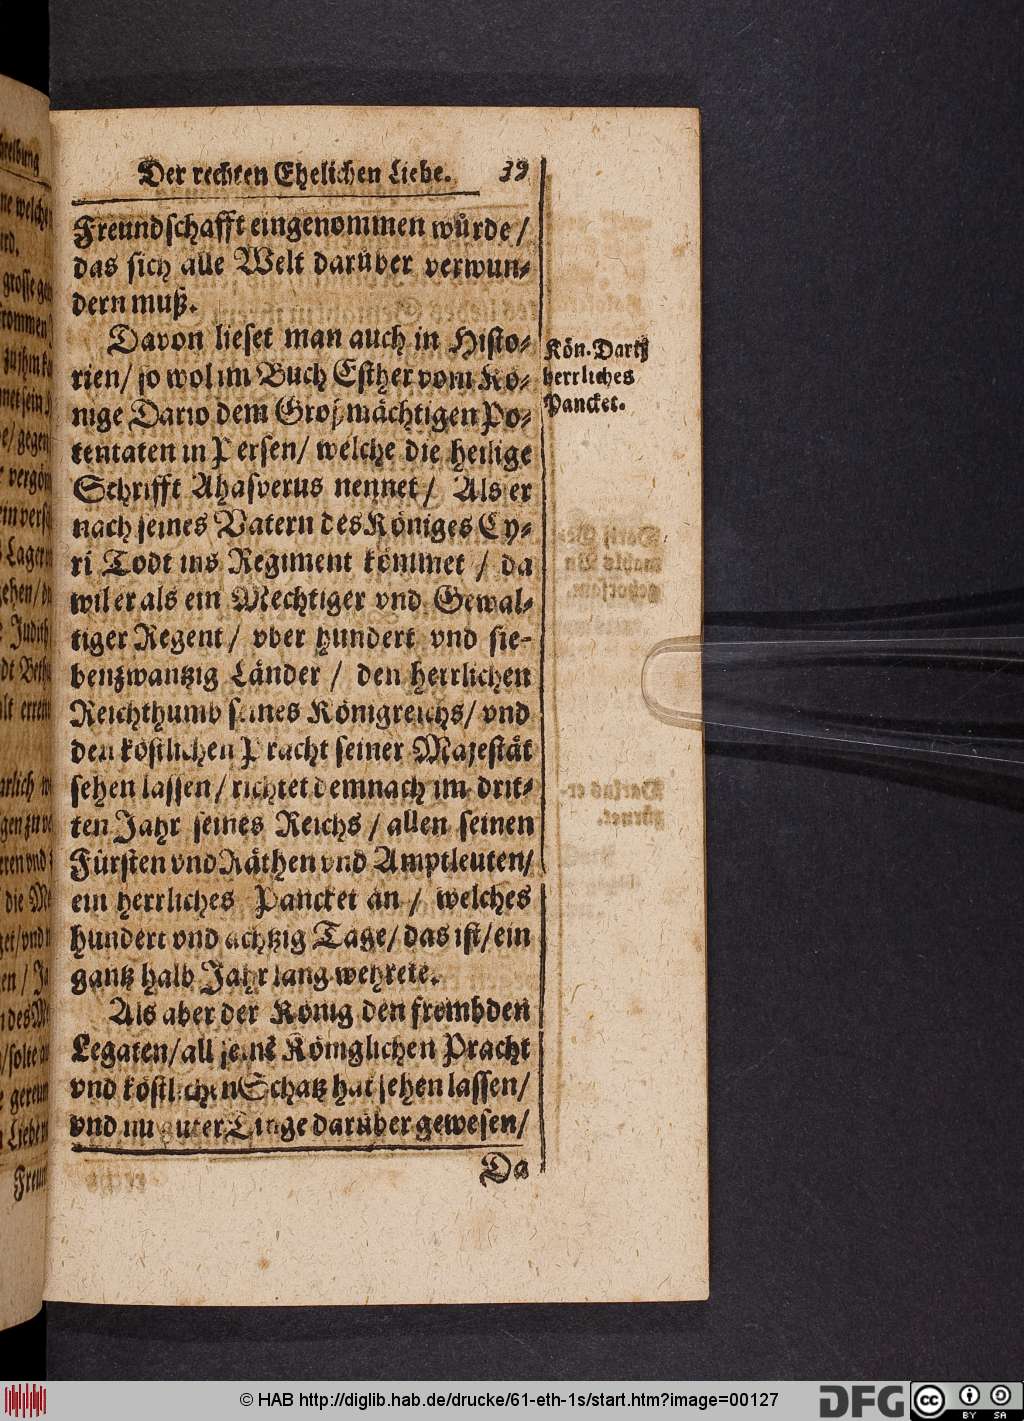 Der rechten Ehelichen Liebe. 39
Freundschafft eingenommen würde /
das sich alle Welt darüber verwun-
dern muß.
Davon lieset man auch in Histo-
rien / so wol im Buch Esther vom Kö-
nige Dario dem Großmächtigen Po-
tentaten in Persen / welche die heilige
Schrifft Ahasverus nennet / Als er
nach seines Vatern des Königes Cy-
ri Todt ins Regiment kömmet / da
wil er als ein Mechtiger vnd Gewal-
tiger Regent / vber hundert vnd sie-
benzwantzig Länder / den herrlichen
Reichthumb seines Königreichs / vnd
den köstlichen Pracht seiner Majestät
sehen lassen / richtet demnach im drit-
ten Jahr seines Reichs / allen seinen
Fürsten vnd Räthen vnd Amptleuten /
ein herrliches Pancket an / welches
hundert vnd achtzig Tage / das ist / ein
gantz halb Jahr lang wehrete.
Als aber der König den frembden
Legaten / all seine Königlichen Pracht
vnd köstlichen Schatz hat sehen lassen /
vnd nu guter Dinge darüber gewesen /
Da
Kön. Darij
herrliches
Pancket.
© HAB http://diglib.hab.de/drucke/61-eth-1s/start.htm?image=00127
DFG
cc
BY SA